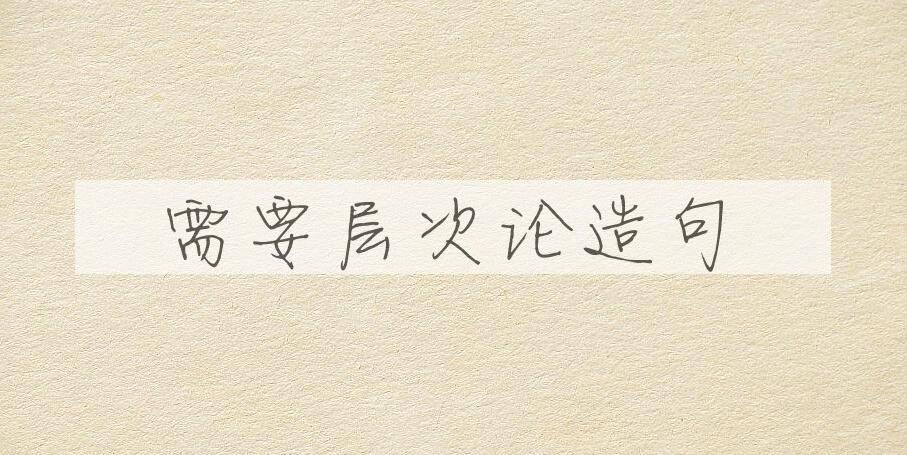 需要层次论造句